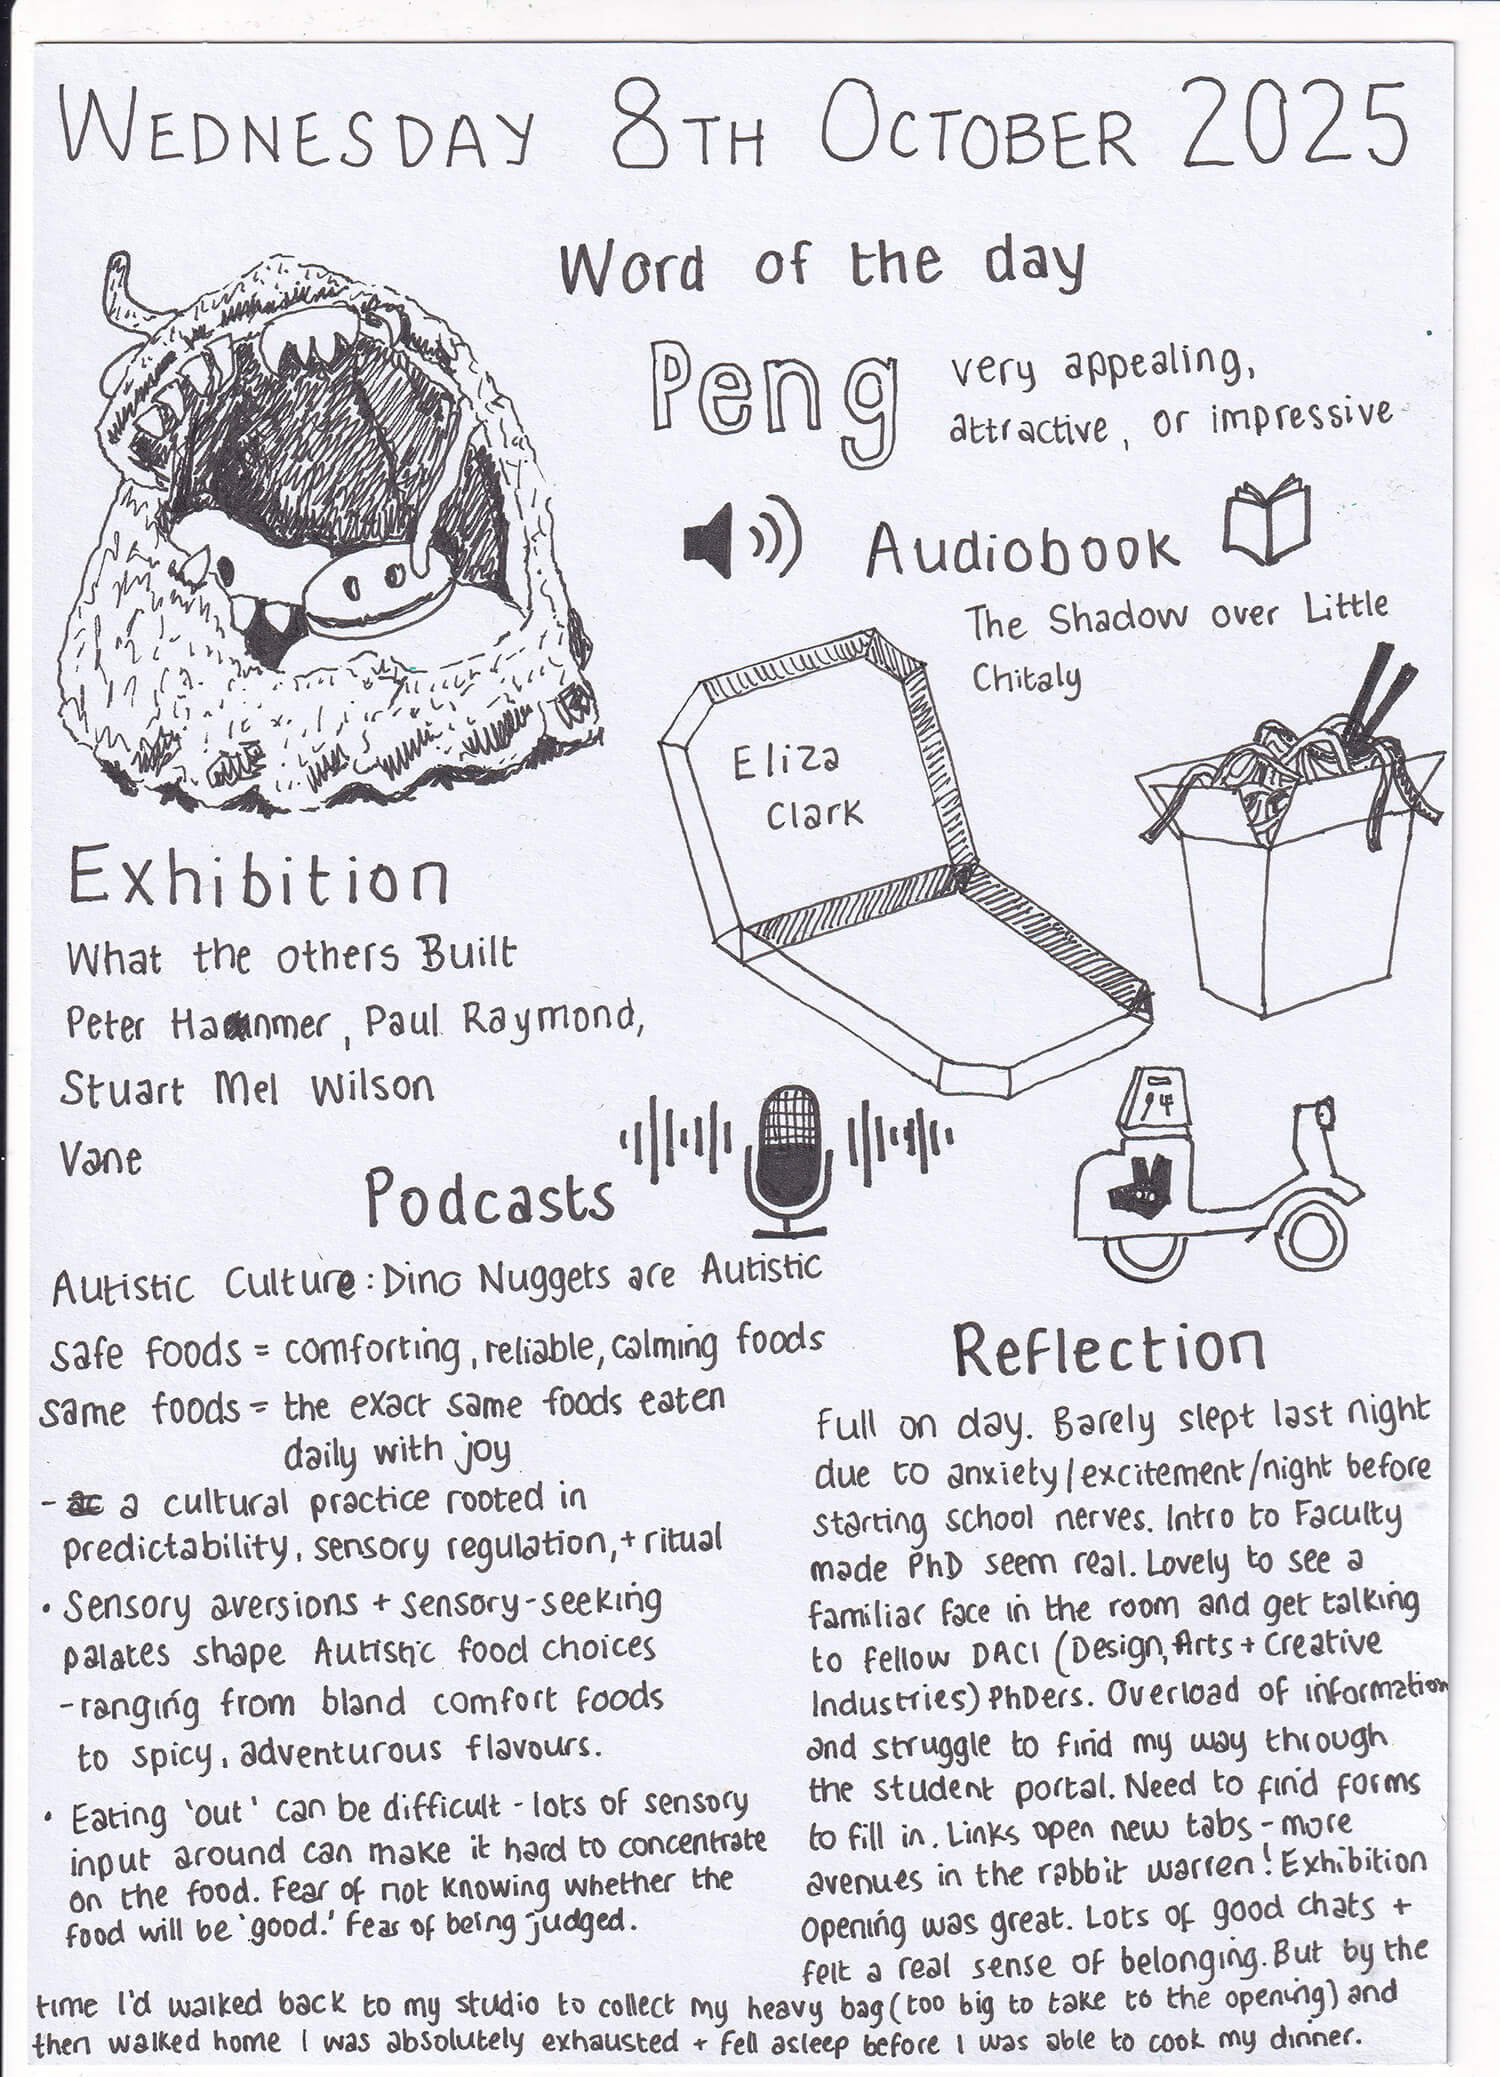 WEDNESDAY 8TH OCTOBER 2025
Word of the day
Peng
very appealing,
attractive, or impressive
Audiobook
The Shadow over Little
Chitaly
Eliza
Clark
Exhibition
What the others Built
Peter Hanmer, Paul Raymond,
Stuart Mel Wilson
Vane
Podcasts
Autistic Culture: Dino Nuggets are Autistic
safe foods = comforting, reliable, calming foods
same foods = the exact same foods eaten
daily with joy
- a cultural practice rooted in
predictability, sensory regulation, + ritual
• Sensory aversions + sensory-seeking
palates shape Autistic food choices
- ranging from bland comfort foods
to spicy, adventurous flavours.
• Eating 'out' can be difficult - lots of sensory
input around can make it hard to concentrate
on the food. Fear of not knowing whether the
food will be 'good.' Fear of being judged.
Reflection
Full on day. Barely slept last night
due to anxiety/excitement/night before
starting school nerves. Intro to Faculty
made PhD seem real. Lovely to see a
familiar face in the room and get talking
to fellow DACI (Design, Arts + Creative
Industries) PhDers. Overload of information
and struggle to find my way through
the student portal. Need to find forms
to fill in. Links open new tabs - more
avenues in the rabbit warren! Exhibition
opening was great. Lots of good chats +
felt a real sense of belonging. But by the
time I'd walked back to my studio to collect my heavy bag (too big to take to the opening) and
then walked home I was absolutely exhausted + fell asleep before I was able to cook my dinner.